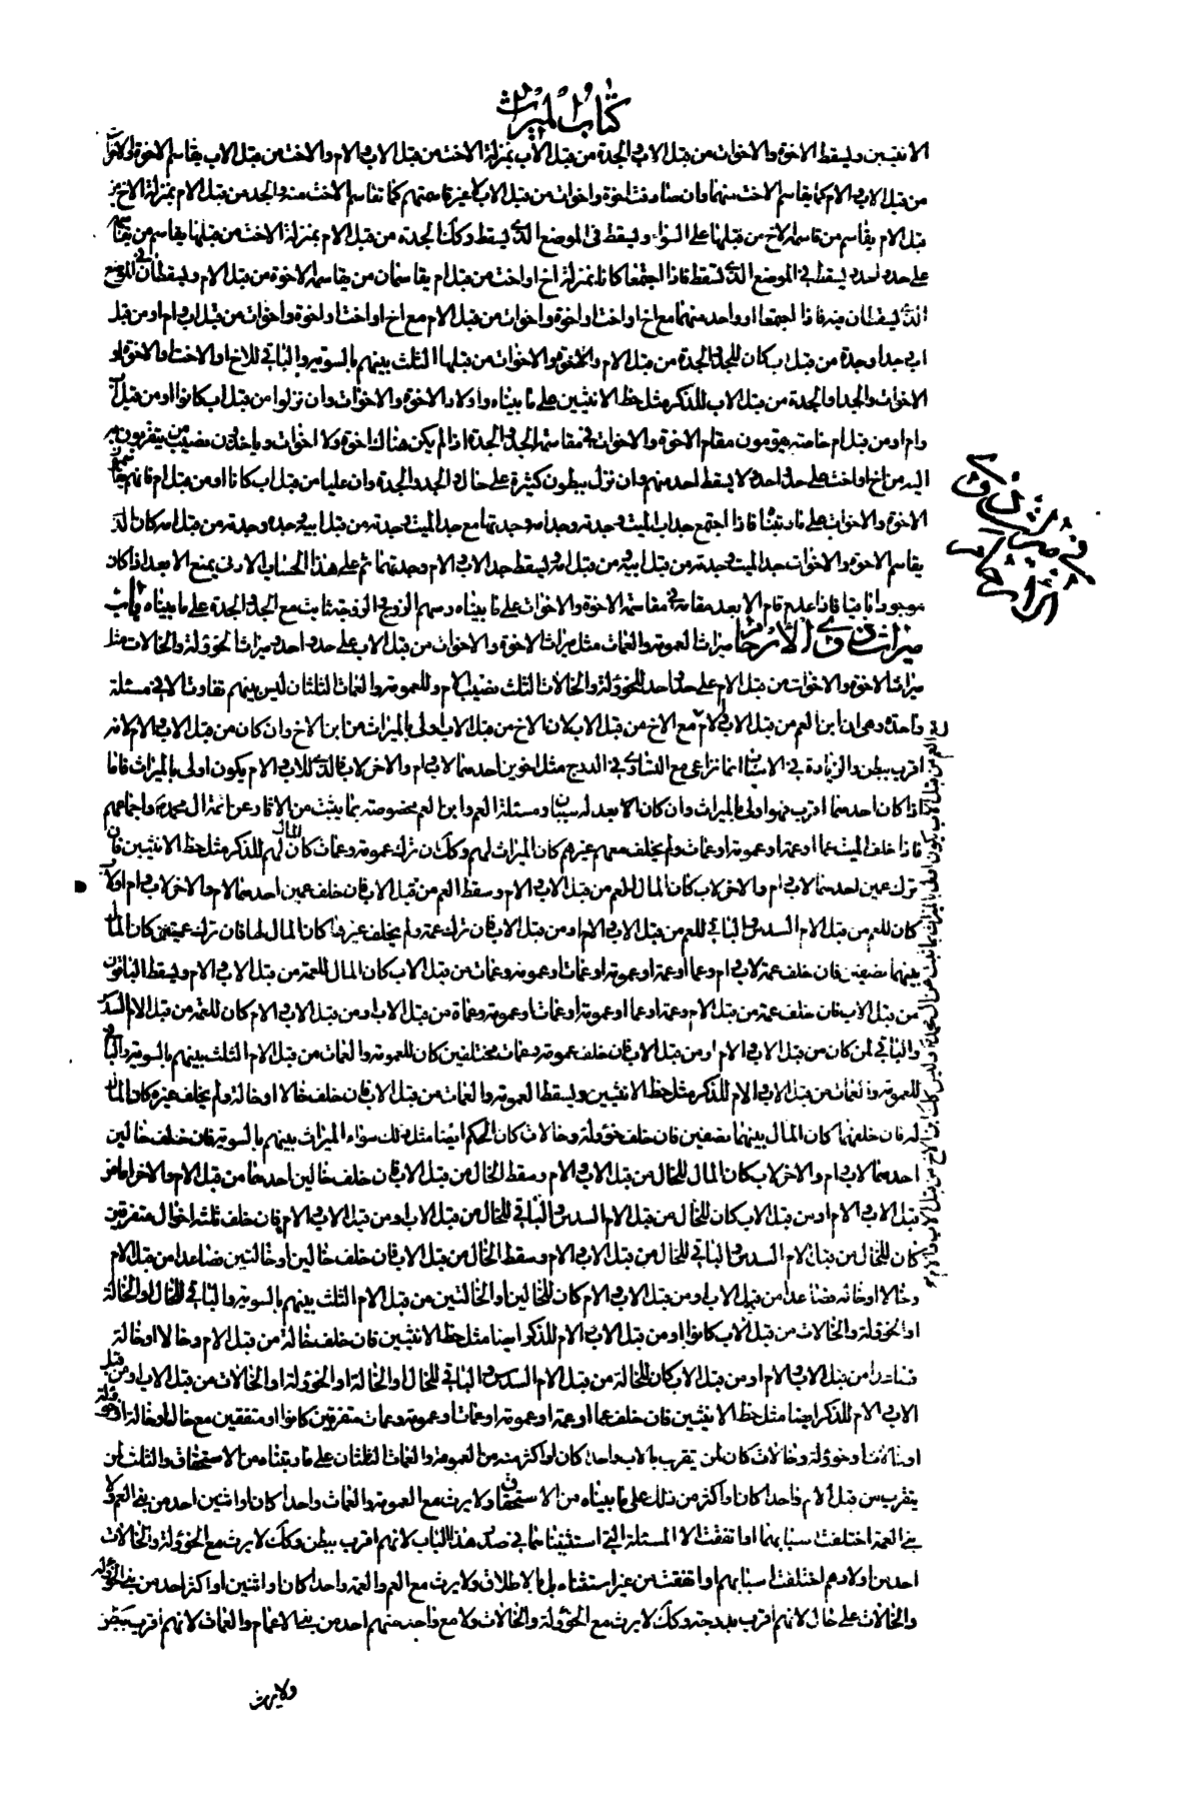 كتاب الميراث
الانثيين ويسقط الاخوة والاخوات من قبل الاب والجدة من قبل الاب بمنزلة الاخت من قبل الاب والام والاخت من قبل الاب يقاسم الاخوة والاخوات
من قبل الاب والام كما يقاسم الاخت منهما وان صادفت اخوة واخوات من قبل الاب لا غير قاسمتهم كما تقاسم الاخت منه والجد من قبل الام بمنزلة الاخ من
قبل الام يقاسم من قاسمه الاخ من قبلها على السواء ويسقط فى الموضع الذى يسقط وكك الجدة من قبل الام بمنزلة الاخت من قبلها يقاسم من يقاسمه
على حد واحد ويسقط فى الموضع الذى تسقط فاذا اجتمعا كانا بمنزلة اخ واخت من قبل ام يقاسمان من يقاسمه الاخوة من قبل الام ويسقطان فى الموضع
الذى يسقطان فيه فاذا اجتمعا او واحد منهما مع اخ او اخت او اخوة واخوات من قبل الام مع اخ او اخت او اخوة واخوات من قبل اب وام او من قبل
اب جد او جدة من قبل اب كان للجد والجدة من قبل الام والاخوة والاخوات من قبلها الثلث بينهم بالسوية والباقى للاخ او الاخت او الاخوة او
الاخوات والجد او الجدة من قبل الاب للذكر مثل حظ الانثيين على ما بيناه واولاد الاخوة والاخوات وان نزلوا من قبل اب كانوا او من قبل اب
وام او من قبل ام خاصة يقومون مقام الاخوة والاخوات فى مقاسمة الجد والجدة اذا لم يكن هناك اخوة ولا اخوات وياخذون نصيب من يتقربون به
اليه من اخ او اخت على حد واحد ولا يسقط احد منهم وان نزل ببطون كثيرة على حال والجد والجدة وان عليا من قبل اب كانا او من قبل ام فانهم يقاسمون
الاخوة والاخوات على ما بيناه فاذا اجتمع جد اب الميت وجدته وجد امه وجدتها مع جد الميت وجدته من قبل ابيه وجده وجدته من قبل امه كان الذى
يقاسم الاخوة والاخوات جد الميت وجدته من قبل ابيه ومن قبل امه ويسقط جد الاب والام وجدتهما ثم على هذا الحساب الادنى يمنع الابعد اذا كان
موجودا باقيا فاذا عدم قام الابعد مقامه فى مقاسمة الاخوة والاخوات على ما بيناه وسهم الزوج والزوجة ثابت مع الجد والجدة على ما بيناه باب
ميراث ذوى الارحام ميراث العمومة والعمات مثل ميراث الاخوة والاخوات من قبل الاب على حد واحد وميراث الخؤلة والخالات مثل
ميراث الاخوة والاخوات من قبل الام على حد واحد للخؤلة والخالات الثلث نصيب الام وللعمومة والعمات الثلثان ليس بينهم تفاوت الا فى مسئلة
واحدة وهى ان ابن العم من قبل الاب والام مع الاخ من قبل الاب لان الاخ من قبل الاب اولى بالميراث من ابن الاخ وان كان من قبل الاب والام لانه
اقرب ببطن والزيادة فى الاسباب انما تراعى مع التساوى فى الدرج مثل اخوين احدهما لاب وام والاخر لاب فالذى للاب والام يكون اولى بالميراث فاما
اذا كان احدهما اقرب فهو اولى بالميراث وان كان الابعد له سببان ومسئلة العم وابن العم مخصوصة بما يثبت من الاثار عن ائمة ال محمد ع واجماعهم
فاذا خلف الميت عما او عمة او عمومة او عمات ولم يخلف معهم غيرهم كان الميراث لهم وكك ان ترك عمومة وعمات كان المال لهم للذكر مثل حظ الانثيين فان
ترك عمين احدهما لاب وام والاخر لاب كان المال للعم من قبل الاب والام وسقط العم من قبل الاب فان خلف عمين احدهما لام والاخر لاب وام او لاب
كان للعم من قبل الام السدس والباقى للعم من قبل الاب والام او من قبل الاب فان ترك عمة ولم يخلف غيرها كان المال لها فان ترك عمتين كان المال
بينهما نصفين فان خلف عمة لاب وام وعما او عمة او عمومة او عمات او عمومة وعمات من قبل الاب كان المال للعمة من قبل الاب والام ويسقط الباقون
من قبل الاب فان خلف عمة من قبل الام وعمة او عما او عمومة او عمات او عمومة وعماة من قبل الاب او من قبل الاب والام كان للعمة من قبل الام السدس
والباقى لمن كان من قبل الاب والام او من قبل الاب فان خلف عمومة وعمات مختلفين كان للعمومة والعمات من قبل الام الثلث بينهم بالسوية والباقى
للعمومة والعمات من قبل الاب والام للذكر مثل حظ الانثيين ويسقط العمومة والعمات من قبل الاب فان خلف خالا او خالة ولم يخلف غيره كان المال
له فان خلفهما كان المال بينهما نصفين فان خلف خؤلة وخالات كان الحكم ايضا مثل ذلك سواء الميراث بينهم بالسوية فان خلف خالين
احدهما لاب وام والاخر لاب كان المال للخال من قبل الاب والام وسقط الخال من قبل الاب فان خلف خالين احدهما من قبل الام والاخر اما من
قبل الاب والام او من قبل الاب كان للخال من قبل الام السدس والباقى للخال من قبل الاب او من قبل الاب والام فان خلف ثلثة اخوال متفرقين
كان للخال من قبل الام السدس والباقى للخال من قبل الاب والام وسقط الخال من قبل الاب فان خلف خالين او خالتين فصاعدا من قبل الام
وخالا او خالة فصاعدا من قبل الاب او من قبل الاب والام كان للخالين او الخالتين من قبل الام الثلث بينهم بالسوية والباقى للخال او الخالة
او الخؤلة والخالات من قبل الاب كانوا او من قبل الاب والام للذكر ايضا مثل حظ الانثيين فان خلف خالة من قبل الام وخالا او خالة
فصاعدا من قبل الاب والام او من قبل الاب كان للخالة من قبل الام السدس والباقى للخال او الخالة او الخؤلة او الخالات من قبل الاب او من قبل
الاب والام للذكر ايضا مثل حظ الانثيين فان خلف عما او عمة او عمومة او عمات او عمومة وعمات متفرقين كانوا او متفقين مع خال او خالة او خؤلة
او خالات او خؤلة وخالات كان لمن يتقرب بالاب واحدا كان او اكثر منه من العمومة والعمات الثلثان على ما بيناه من الاستحقاق والثلث لمن
يتقرب من قبل الام واحدا كان او اكثر من ذلك على ما بيناه من الاستحقاق ولا يرث مع العمومة والعمات واحدا كان او اثنين احد من بنى العم ولا
بنى العمة اختلفت اسبابهما او اتفقت الا المسئلة التى استثنيناها فى صدر هذا الباب لانهم اقرب ببطن وكك لا يرث مع الخؤلة والخالات
احد من اولادهم اختلفت اسبابهم او اتفقت من غير استثناء بل بالاطلاق ولا يرث مع العم والعمة واحدا كان او اثنين او اكثر احد من بنى الخؤلة
والخالات على حال لانهم اقرب بدرجة وكك لا يرث مع الخؤلة والخالات ولا مع واحد منهم احد من بنى الاعمام والعمات لانهم اقرب ببطن
ولا يرث
فى ميراث ذوى
الارحام